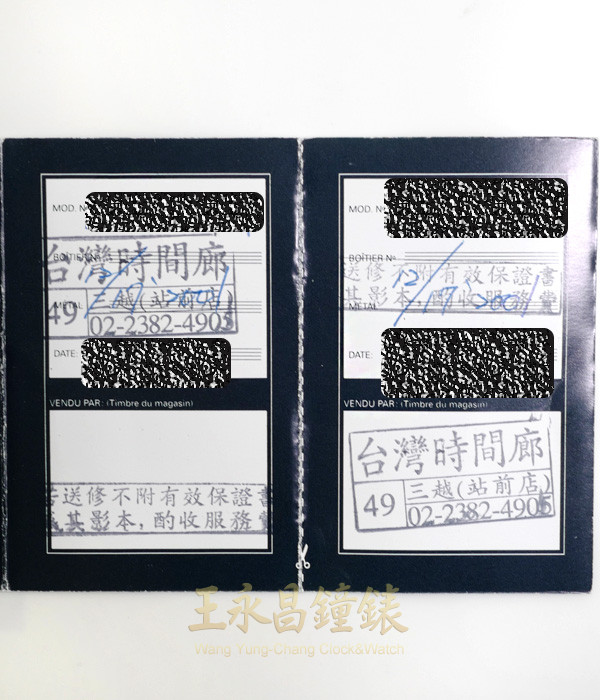 MOD. N
台灣時間廊
BOÎTIER N
METAL
49
三越(站前店
02-2382-4905
DATE:
VENDU PAR: (Timbre du magasin)
送修不附有效保證書
其影本,酌收服務
MOD. Nº
BOÎTIER Nº
送修不附有效保證書
其影本,酌收服務費
METAL
12/17, 2001
DATE:
VENDU PAR: (Timbre du magasin)
台灣時間廊
49
三越(站前店)
02-2382-4905
王永昌鐘錶
Wang Yung-Chang Clock&Watch